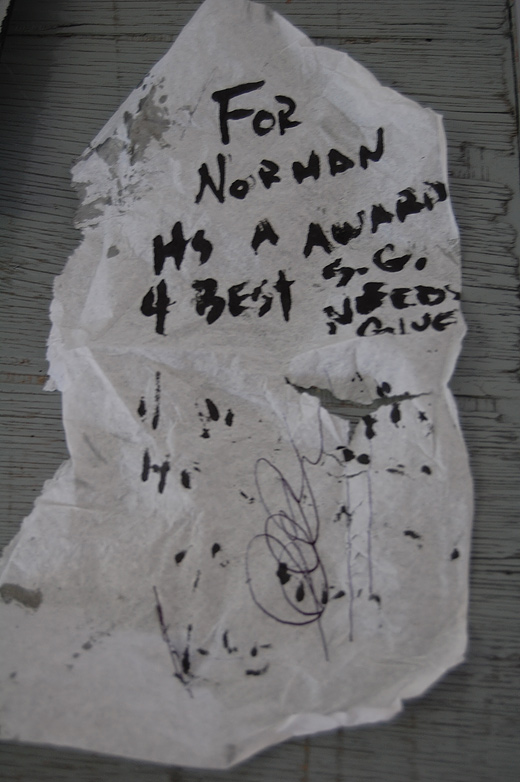 FOR
NORMAN
HS A AWARD
4 BEST S.G.
NEEDS
GLUE